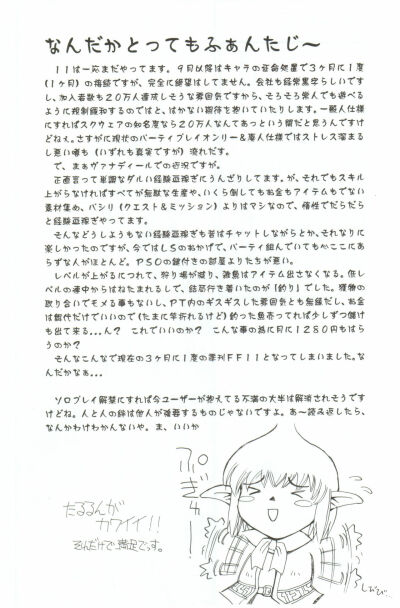 なんだかとってもふぁんたじ〜
11は一応まだやってます。9月以降はキャラの延命処置で3ヶ月に1度
(1ヶ月)の接続ですが、完全に絶望はしてません。会社も経営黒字らしいです
し、加入者数も20万人達成しそうな雰囲気ですから、そろそろ常人でも遊べる
ように規制緩和するのではと、はかない期待を抱いていたりします。一般人仕様
にすればスクウェアの知名度なら20万人なんてあっという間だと思うんですけ
どねぇ。さすがに現状のパーティプレイオンリー&廃人仕様ではストレス溜まる
し悪い噂も(いずれも真実ですが)流れだす。
で、まぁヴァナディールでの近況ですが。
正直言って単調なダルい経験値稼ぎにうんざりしてます。が、それでもスキル
上がらなければすべてが無駄な生産や、いくら倒してもお金もアイテムもでない
素材集め、パシリ(クエスト&ミッション)よりはマシなので、惰性でだらだら
と経験値稼ぎやってます。
そんなどうしようもない経験値稼ぎも昔はチャットしながらとか、それなりに
楽しかったのですが、今ではLSのおかげで、パーティ組んでいても心ここにあ
らずな人がほとんど。PSOの鍵付きの部屋よりたちが悪い。
レベルが上がるにつれて、狩り場が減り、雑魚はアイテム出さなくなる。低レ
ベルの連中からはねたまれるしで、結局行き着いたのが「釣り」でした。獲物の
取り合いでモメる事もないし、PT内のギスギスした雰囲気とも無縁だし、お金
は餌代だけでいいので(たまに竿折れるけど)釣った魚売ってれば少しずつ儲け
も出て来る...ん? これでいいのか? こんな事の為に月に1280円もはら
うのか?
そんなこんなで現在の3ヶ月に1度の季刊FF11となってしまいました。な
んだかなぁ...
ソロプレイ解禁にすれば今ユーザーが抱えてる不満の大半は解消されそうです
けどね。人と人の絆は他人が強要するものじゃないですよ。あ〜読み返したら、
なんかわけわかんないや。ま、いいか
ぷぎゅー
たるるんが
カワイイ!!
それだけで満足です。
しおびび…